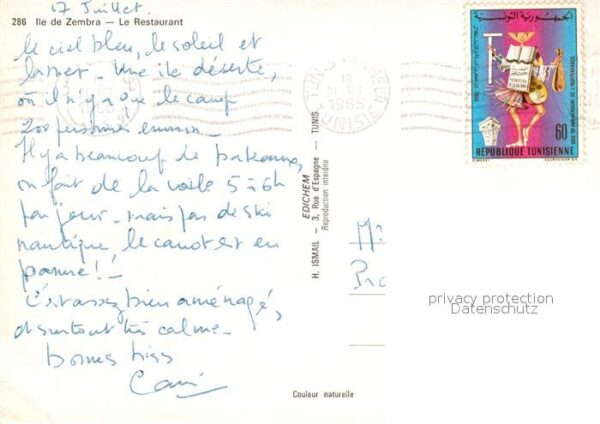 17 Juillet.
286 Ile de Zembra — Le Restaurant
le ciel bleu, le soleil et
la mer - Une île déserte,
où il n'y a que le camp
200 personnes environ -
Il y a beaucoup de bateaux,
on fait de la voile 5 à 6h
par jour - mais pas de ski
nautique, le canot est en
panne! -
C'est assez bien aménagé,
et surtout très calme -
bonnes bises
Couleur naturelle
H. ISMAIL — 3, Rue d'Espagne — TUNIS
EDICHEM
Reproduction interdite
TUNIS
18
1966
TUNIS
الجمهورية التونسية
60
REPUBLIQUE TUNISIENNE
privacy protection
Datenschutz